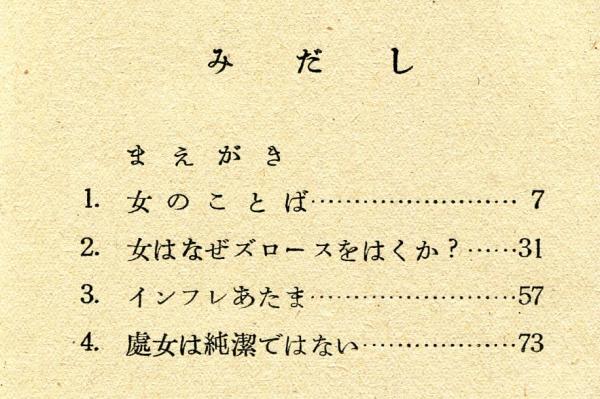 みだし
まえがき
1. 女のことば…………………… 7
2. 女はなぜズロースをはくか？……31
3. インフレあたま……………………57
4. 處女は純潔ではない………………73